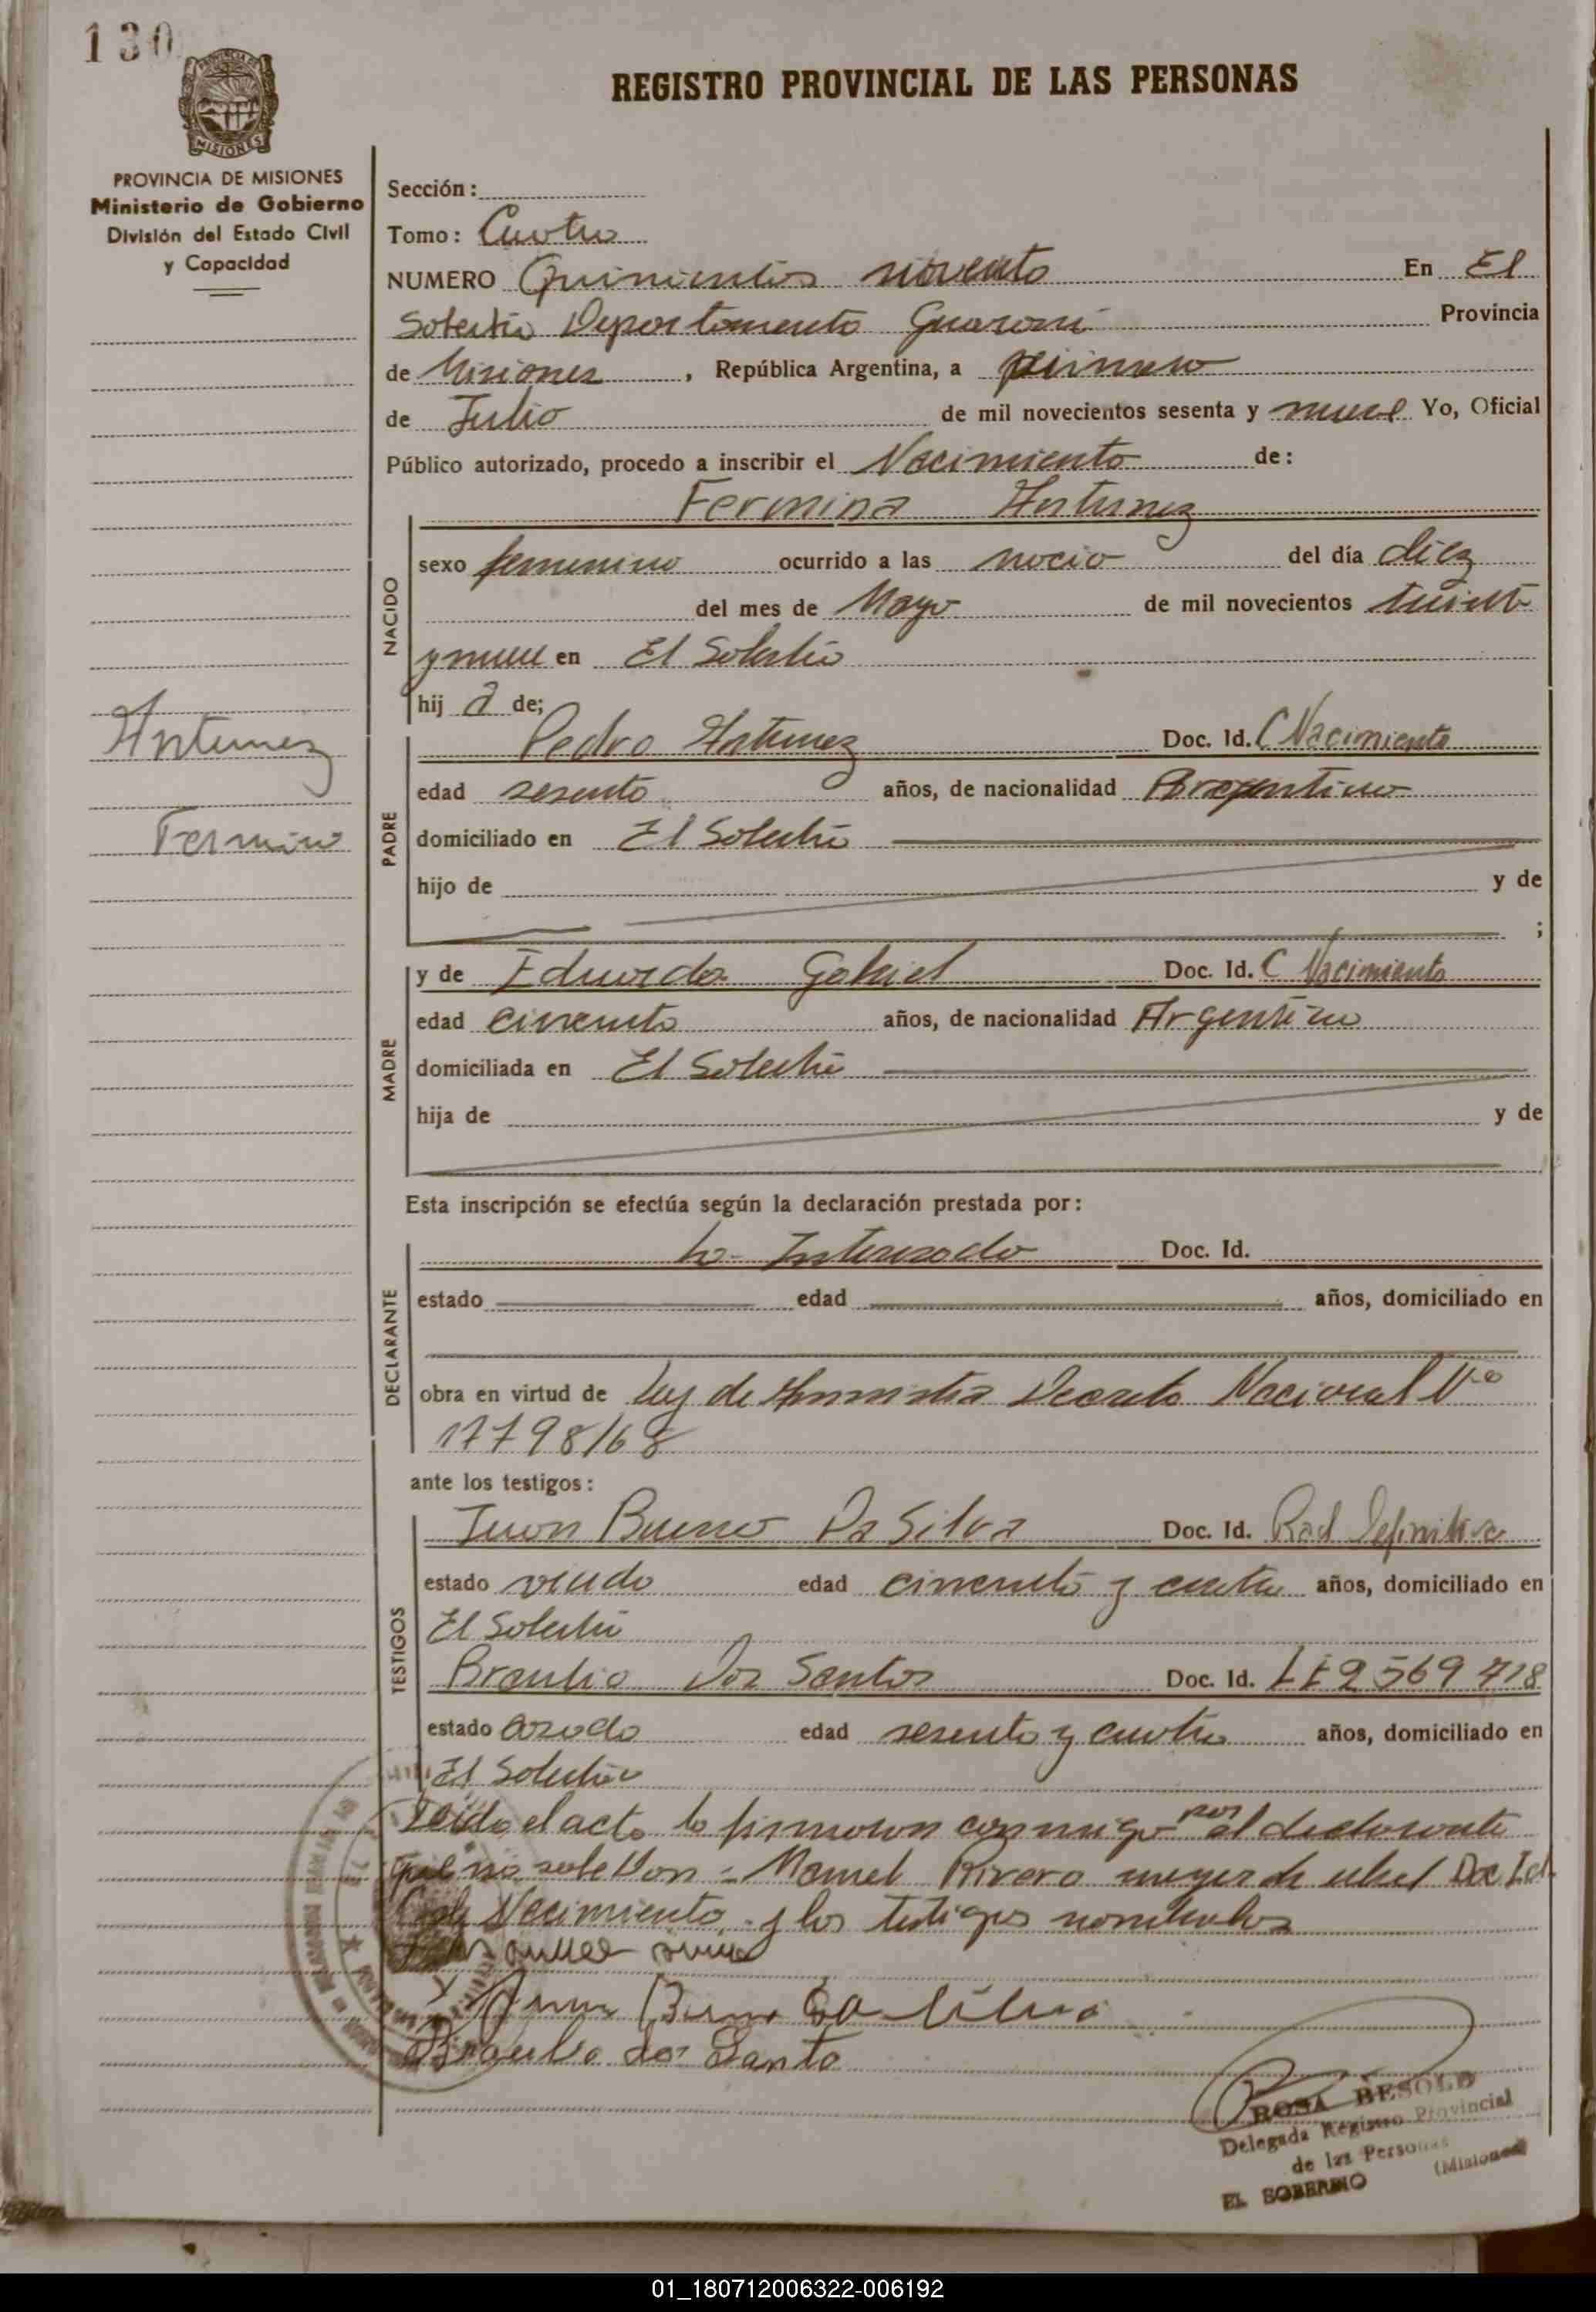 130
MISIONES
REGISTRO PROVINCIAL DE LAS PERSONAS
PROVINCIA DE MISIONES
Ministerio de Gobierno
División del Estado Civil
y Capacidad
Sección:
Tomo: Cuatro
NUMERO Quinientos noventa En El
Soberbio Departamento Guarani Provincia
de Misiones, República Argentina, a primero
de Julio de mil novecientos sesenta y nueve Yo, Oficial
Público autorizado, procedo a inscribir el Nacimiento de:
Fermina Antunez
NACIDO
sexo femenino ocurrido a las del día diez
del mes de Mayo de mil novecientos treinta
y nueve en El Soberbio
hij a de;
Antunez
Fermina
PADRE
Pedro Antunez Doc. Id. C Nacimiento
edad sesenta años, de nacionalidad Argentino
domiciliado en El Soberbio
hijo de y de
;
MADRE
y de Eduarda Gabriel Doc. Id. C Nacimiento
edad cincuenta años, de nacionalidad Argentina
domiciliada en El Soberbio
hija de y de
Esta inscripción se efectúa según la declaración prestada por:
DECLARANTE
La Interesada Doc. Id.
estado edad años, domiciliado en
obra en virtud de Ley de Amnistia Decreto Nacional Nº
17798/68
ante los testigos:
TESTIGOS
Juan Bueno Da Silva Doc. Id. Rad Definitiva
estado viudo edad cincuenta y cuatro años, domiciliado en
El Soberbio
Braulio Dos Santos Doc. Id. LE 2569718
estado casado edad sesenta y cuatro años, domiciliado en
El Soberbio
Leida el acta la firmaron conmigo por el declarante
que no sabe Don = Manuel Rivero mayor de edad Doc Id
C de Nacimiento y los testigos nombrados
Juan Bueno Da Silva
Braulio dos Santo
ROSA BESOLD
Delegada Registro Provincial
de las Personas
EL SOBERBIO (Misiones)
01_180712006322-006192